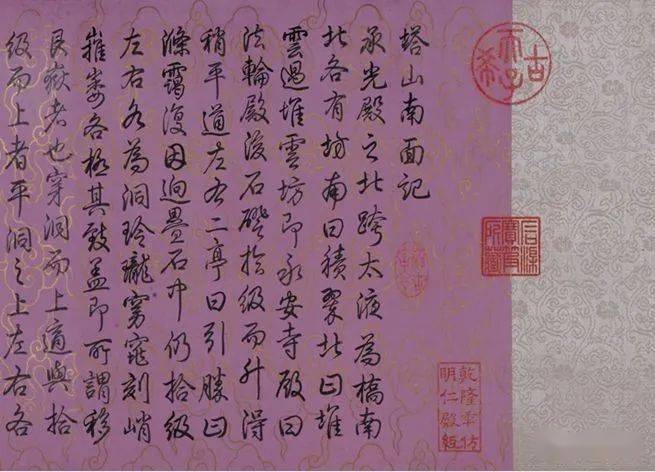 古希天子
石渠寶笈所藏
乾隆年仿
明仁殿紙
塔山南面記
承光殿之北跨太液為橋南
北各有坊南曰積翠北曰堆
雲過堆雲坊即永安寺殿曰
法輪殿後石磴拾級而升得
稍平道左右二亭曰引勝曰
滌靄復因迴疊石中仍拾級
左右各為洞玲瓏窈窕刻峭
各極其致蓋即所謂移
艮嶽者也穿洞而上適與拾
級而上者平洞之上左右各